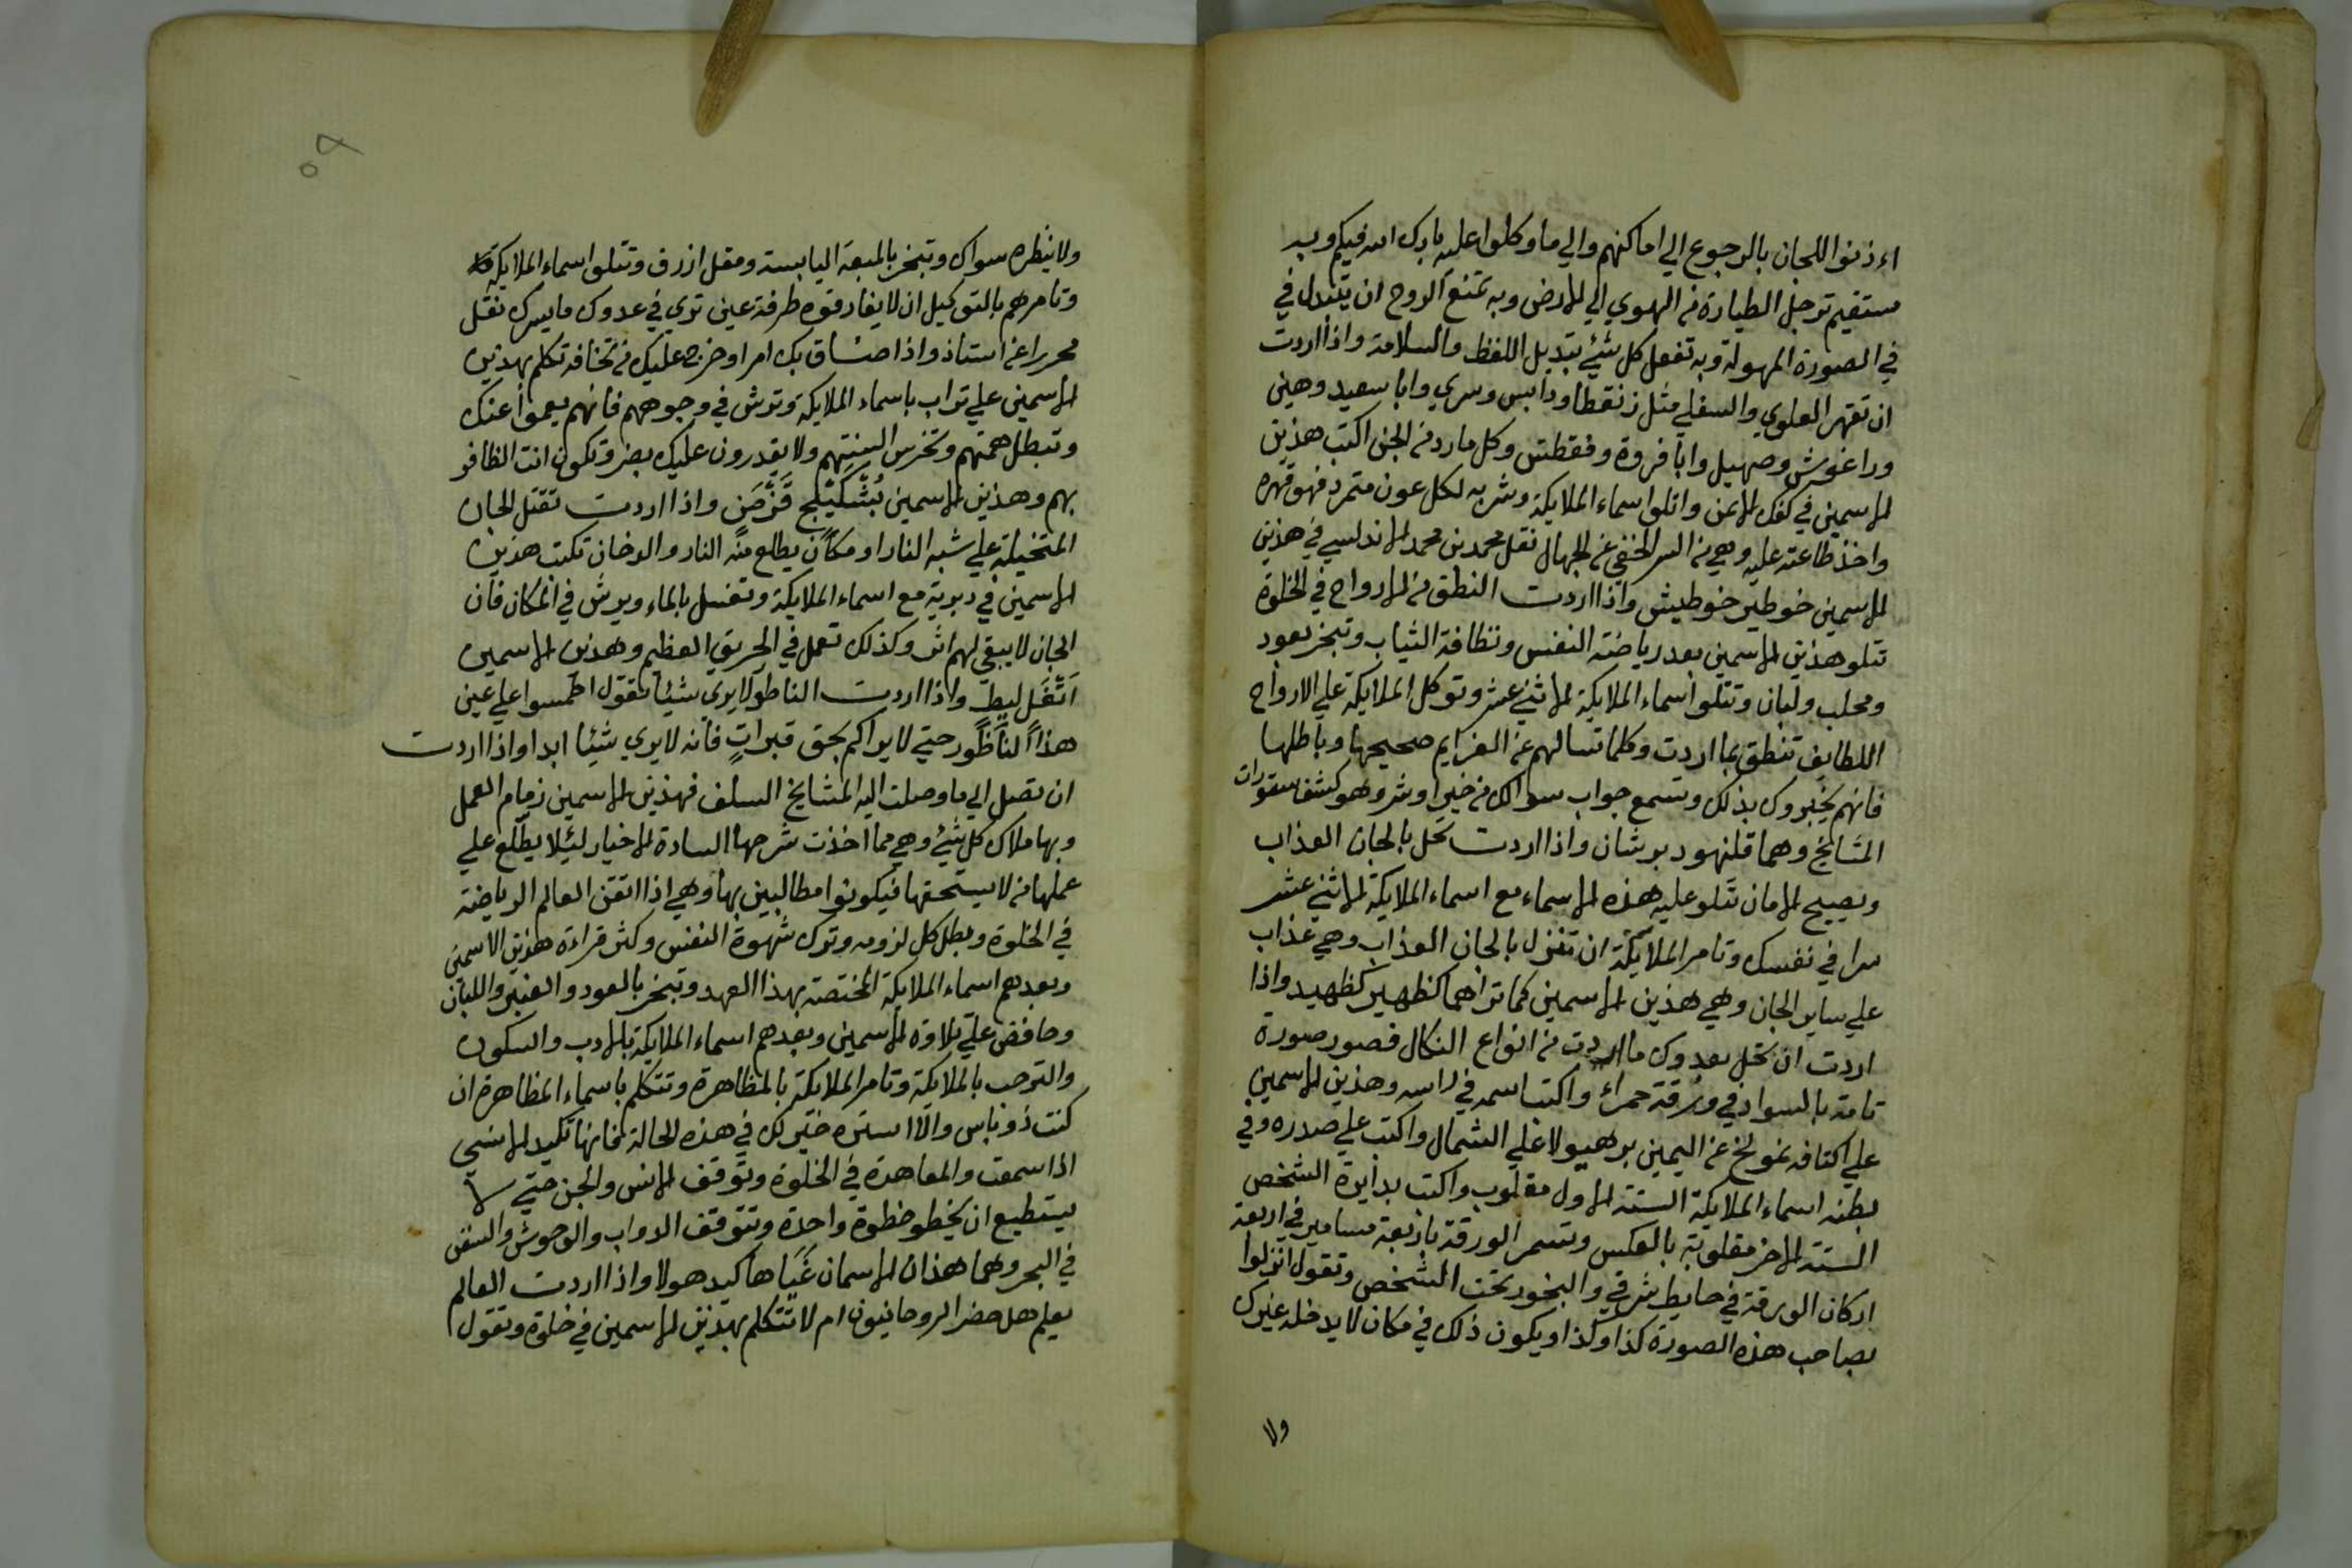 اءذنوا للجان بالرجوع الي اماكنهم والي ما وكلوا عليه بارك الله فيكم وبه
ستقيم ترجل الطيارة من الهوي الي الارض وبه تمنع الروح ان يتبدل في
في الصورة المهولة وبه تفعل كل شئ بتبديل اللفظ والسلامة واذا اردت
ان تقهر العلوي والسفلي مثل زنقطا ودابس وسري وابا سعيد وهيني
وراغوش وصهيل وابا فروة وفقطش وكل مارد من الجن اكتب هذين
الاسمين في كفك الايمن واتلوا اسماء الملايكة وشر به لكل عون متمرد فهو قهره
واخذ طاعته عليه وهي من السر الخفي عن الجهال نقل محمد بن محمد الاندلسي في هذين
الاسمين خوطير خوطيش واذا اردت النطق من الارواح في الخلوة
تتلو هذين الاسمين بعد رياضة النفس ونظافة الثياب وتبخر بعود
ومحلب ولبان وتتلوا اسماء الملايكة الاثني عشر وتوكل الملايكة علي الارواح
اللطايف تنطق بما اردت وكلما تسالهم عن العزايم صحيحها وباطلها
فانهم يخبروك بذلك وتسمع جواب سوالك من خير او شر وهو كشف ستورات
المشايخ وهما قلنهود برشان واذا اردت تحل بالجان العذاب
ويصيح الامان تتلو عليه هذه الاسماء مع اسماء الملايكة الاثني عشر
سرا في نفسك وتامر الملايكة ان تنزل بالجان العذاب وهي عذاب
علي ساير الجان وهي هذين الاسمين كما تراهما كظهير كظهيد واذا
اردت ان تحل بعدوك ما اردت من انواع النكال فصور صورة
تامة بالسواد في ورقة حمراء واكتب اسمه في راسه وهذين الاسمين
علي اكتافه نمولخ عن اليمين برهيولا علي الشمال واكتب علي صدره وفي
بطنه اسماء الملايكة الستة الاول مقلوب واكتب بدايرة الشخص
الستة الاخر مقلوبة بالعكس وتسمر الورقة باربعة مسامير في اربعة
اركان الورقة في حايط شرقي والبخور تحت الشخص وتقول انزلوا
بصاحب هذه الصورة كذا وكذا ويكون ذلك في مكان لا يدخله غيرك
ولا
ولا ينظره سواك وتبخر بالميعة اليابسة ومقل ازرق وتتلوا اسماء الملايكة
وتامرهم بالتوكيل ان لا يفارقوه طرفة عين تري في عدوك ما يسرك نقل
محررا عن استاذ واذا ضاق بك امر او خرج عليك من تخافه تكلم بهذين
الاسمين علي تراب باسماء الملايكة وترش في وجوههم فانهم يعموا عنك
وتبطل همتهم وتخرس السنتهم ولا يقدرون عليك بضر وتكون انت الظافر
بهم وهذين الاسمين بُشْكَيْلَج قَزْصَنٍ واذا اردت تقتل الجان
المتخيلة علي شبه النار او مكان يطلع منه النار والدخان تكتب هذين
الاسمين في زبدية مع اسماء الملايكة وتغسل بالماء ويرش في المكان فان
الجان لا يبقي لهم اثر وكذلك تعمل في الحريق العظيم وهذين الاسمين
اَتَّغَل ليطٍ واذا اردت الناظر لا يري شيئا تقول اطمسوا علي عين
هذا الناظور حتي لا يراكم بحق قبراتٍ فانه لا يري شيئا ابدا واذا اردت
ان تصل الي ما وصلت اليه المشايخ السلف فهذين الاسمين زمام العمل
وبها ملاك كل شئ وهي مما اخذت شرحها السادة الاخيار ليلا يطلع علي
عملها من لا يستحقها فيكونوا مطالبين بها وهي اذا اتقن العالم الرياضة
في الخلوة وبطل كل لزومه وترك شهوة النفس وكثر قراءة هذين الاسمين
وبعدهم اسماء الملايكة المختصة بهذا العهد وتبخر بالعود والعنبر واللبان
وحافض علي تلاوة الاسمين وبعدهم اسماء الملايكة بالادب والسكون
والترحب بالملايكة وتامر الملايكة بالمظاهرة وتتكلم باسماء المظاهرة ان
كنت ذو باس والا استره خير لك في هذه الحالة فانها تكيد الانسي
اذا سمعت والمعاهدة في الخلوة وتوقف الانس والجن حتي لا
يستطيع ان يخطو خطوة واحدة وتتوقف الدواب والوحوش والسفن
في البحر وهما هذان الاسمان غَيَاها كيد هولا واذا اردت العالم
يعلم هل حضر الروحانيون ام لا تتكلم بهذين الاسمين في خلوة وتقول